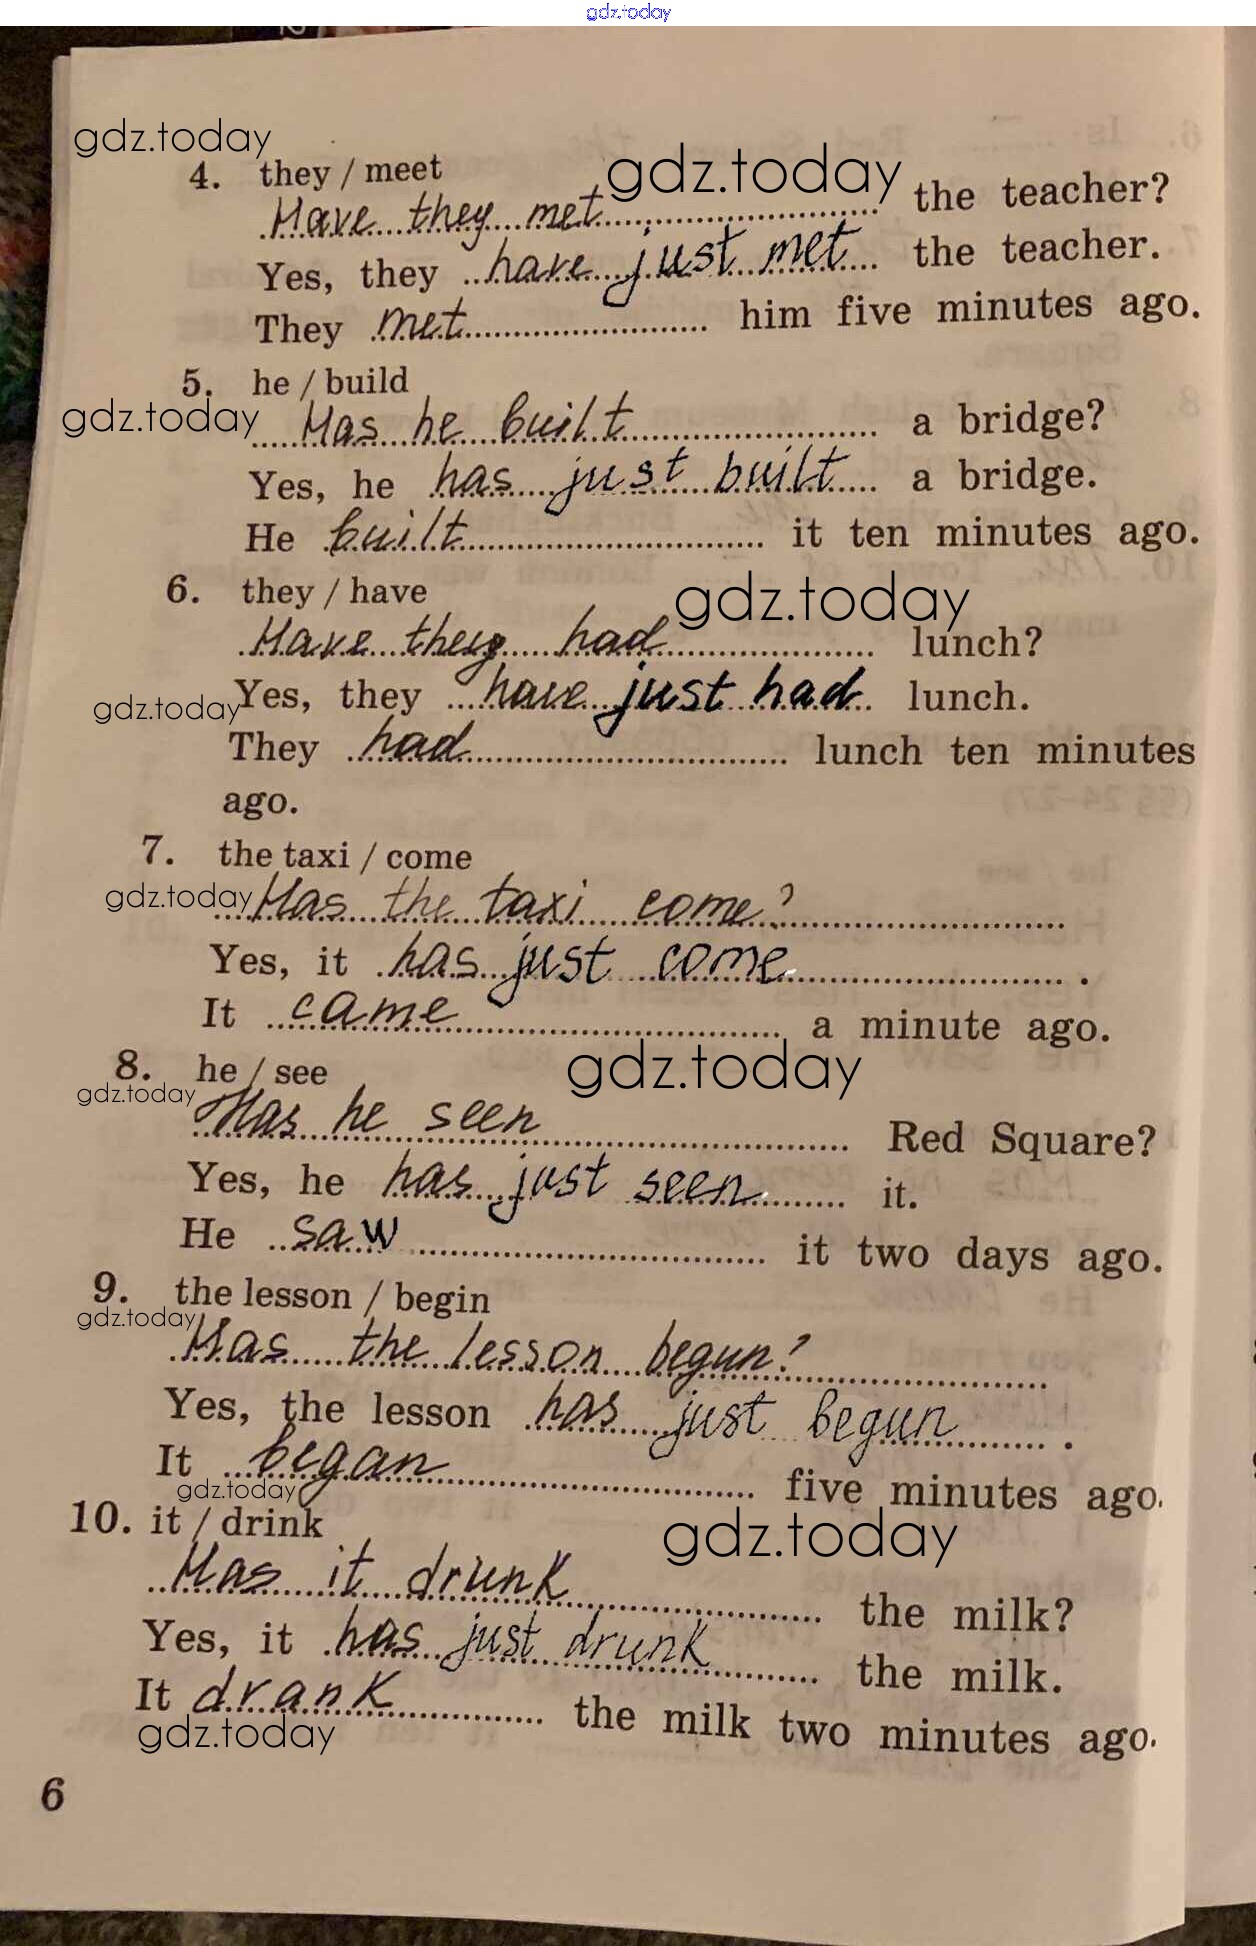 gdz.today
gdz.today
4. they / meet
gdz.today
Have they met the teacher?
Yes, they have just met the teacher.
They met him five minutes ago.
5. he / build
gdz.today
Has he built a bridge?
Yes, he has just built a bridge.
He built it ten minutes ago.
6. they / have
gdz.today
Have they had lunch?
Yes, they have just had lunch.
gdz.today
They had lunch ten minutes
ago.
7. the taxi / come
gdz.today
Has the taxi come?
Yes, it has just come.
It came a minute ago.
8. he / see
gdz.today
gdz.today
Has he seen Red Square?
Yes, he has just seen it.
He saw it two days ago.
9. the lesson / begin
gdz.today
Has the lesson begun?
Yes, the lesson has just begun.
It began five minutes ago.
gdz.today
10. it / drink
gdz.today
Has it drunk the milk?
Yes, it has just drunk the milk.
It drank the milk two minutes ago.
gdz.today
6